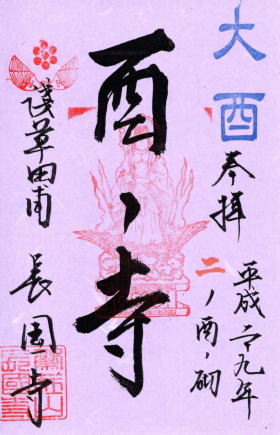 大酉
奉拝
平成二九年
二ノ酉ノ砌
酉ノ寺
浅草田甫
長國寺